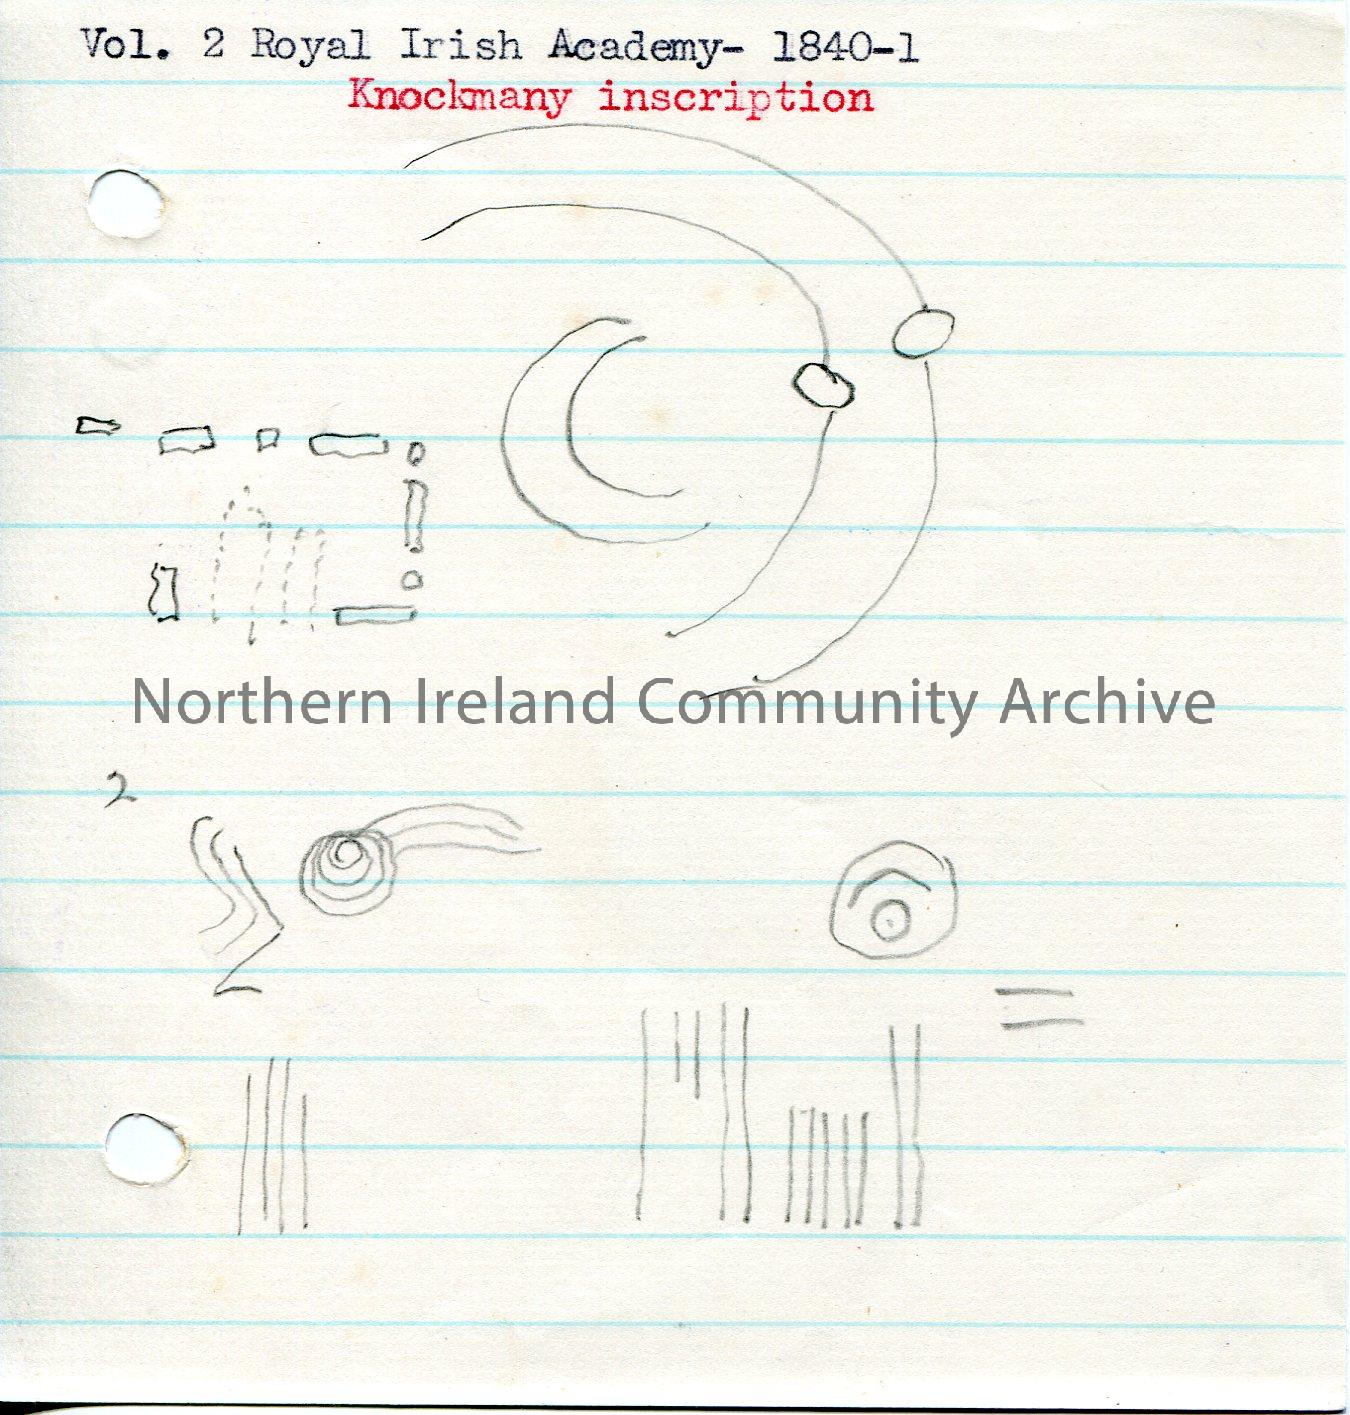 Vol. 2 Royal Irish Academy- 1840-1
Knockmany inscription
Northern Ireland Community Archive
2